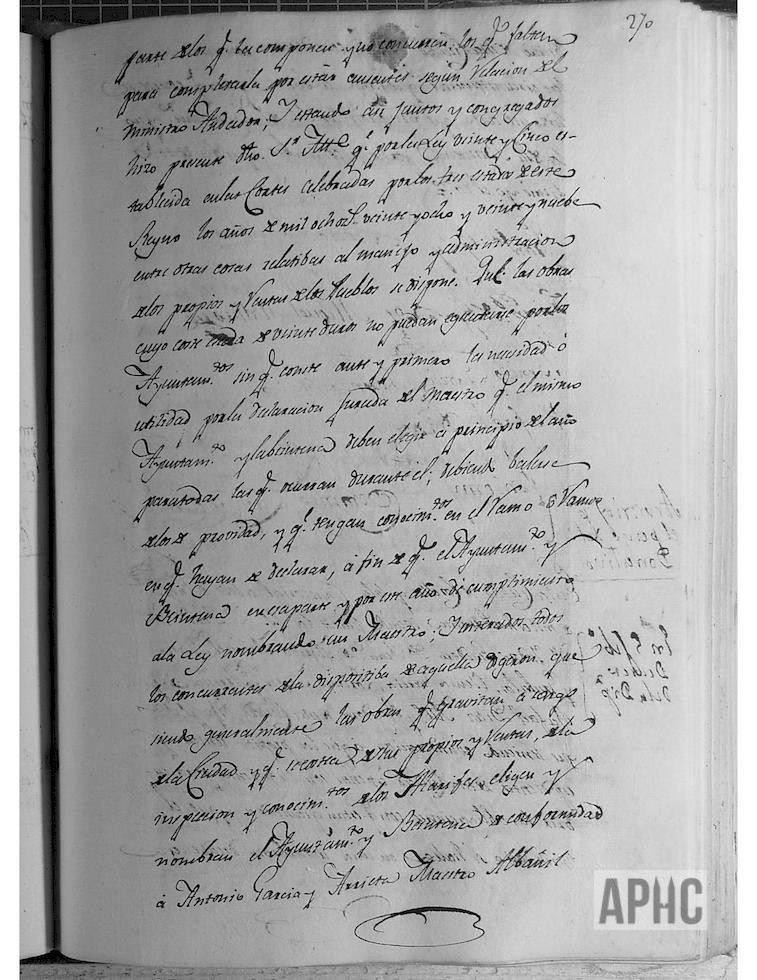 270
parte de los q.e la componen y no concurren los q.e faltan
para completarla por estár ausentes segun relacion del
Ministro Andador; Y estando asi juntos y congregados
hizo presente dho. S.r Alc.e q.e por la Ley veinte y Cinco es-
tablecida en las Cortes celebradas por los tres estados de este
Reyno los años de mil ochoz.s veinte y ocho y veinte y nuebe
entre otras cosas relatibas al manejo y administracion
de los propios y Rentas de los Pueblos se dispone. Que las obras
cuyo coste exceda de veinte duros no puedan egecutarse por los
Ayuntam.tos sin q.e conste ante y primero la necesidad ó
utilidad por la declaracion Jurada del Maestro q.e el mismo
Ayuntam.to y la beintena deben elegir á principio del año
para todas las q.e ocurran durante él; debiendo balerse
de los de providad, y q.e tengan conocim.tos en el Ramo ó Ramos
en q.e hayan de declarar, á fin de q.e el Ayuntam.to y
Beintena en esa parte y por este año dé cumplimiento
a la Ley nombrando un Maestro; Y enterados todos
los concurrentes de la dispositiba de aquella digeron que
siendo generalmente las obras q.e gravitan á cargo
de la Ciudad y q.e se costea de sus propios y Rentas, de la
inspeccion y conocim.tos de los Alarifes, eligen y
nombran el Ayuntam.to y Beintena de conformidad
á Antonio Garcia y Arrieta Maestro Albañil
APHC